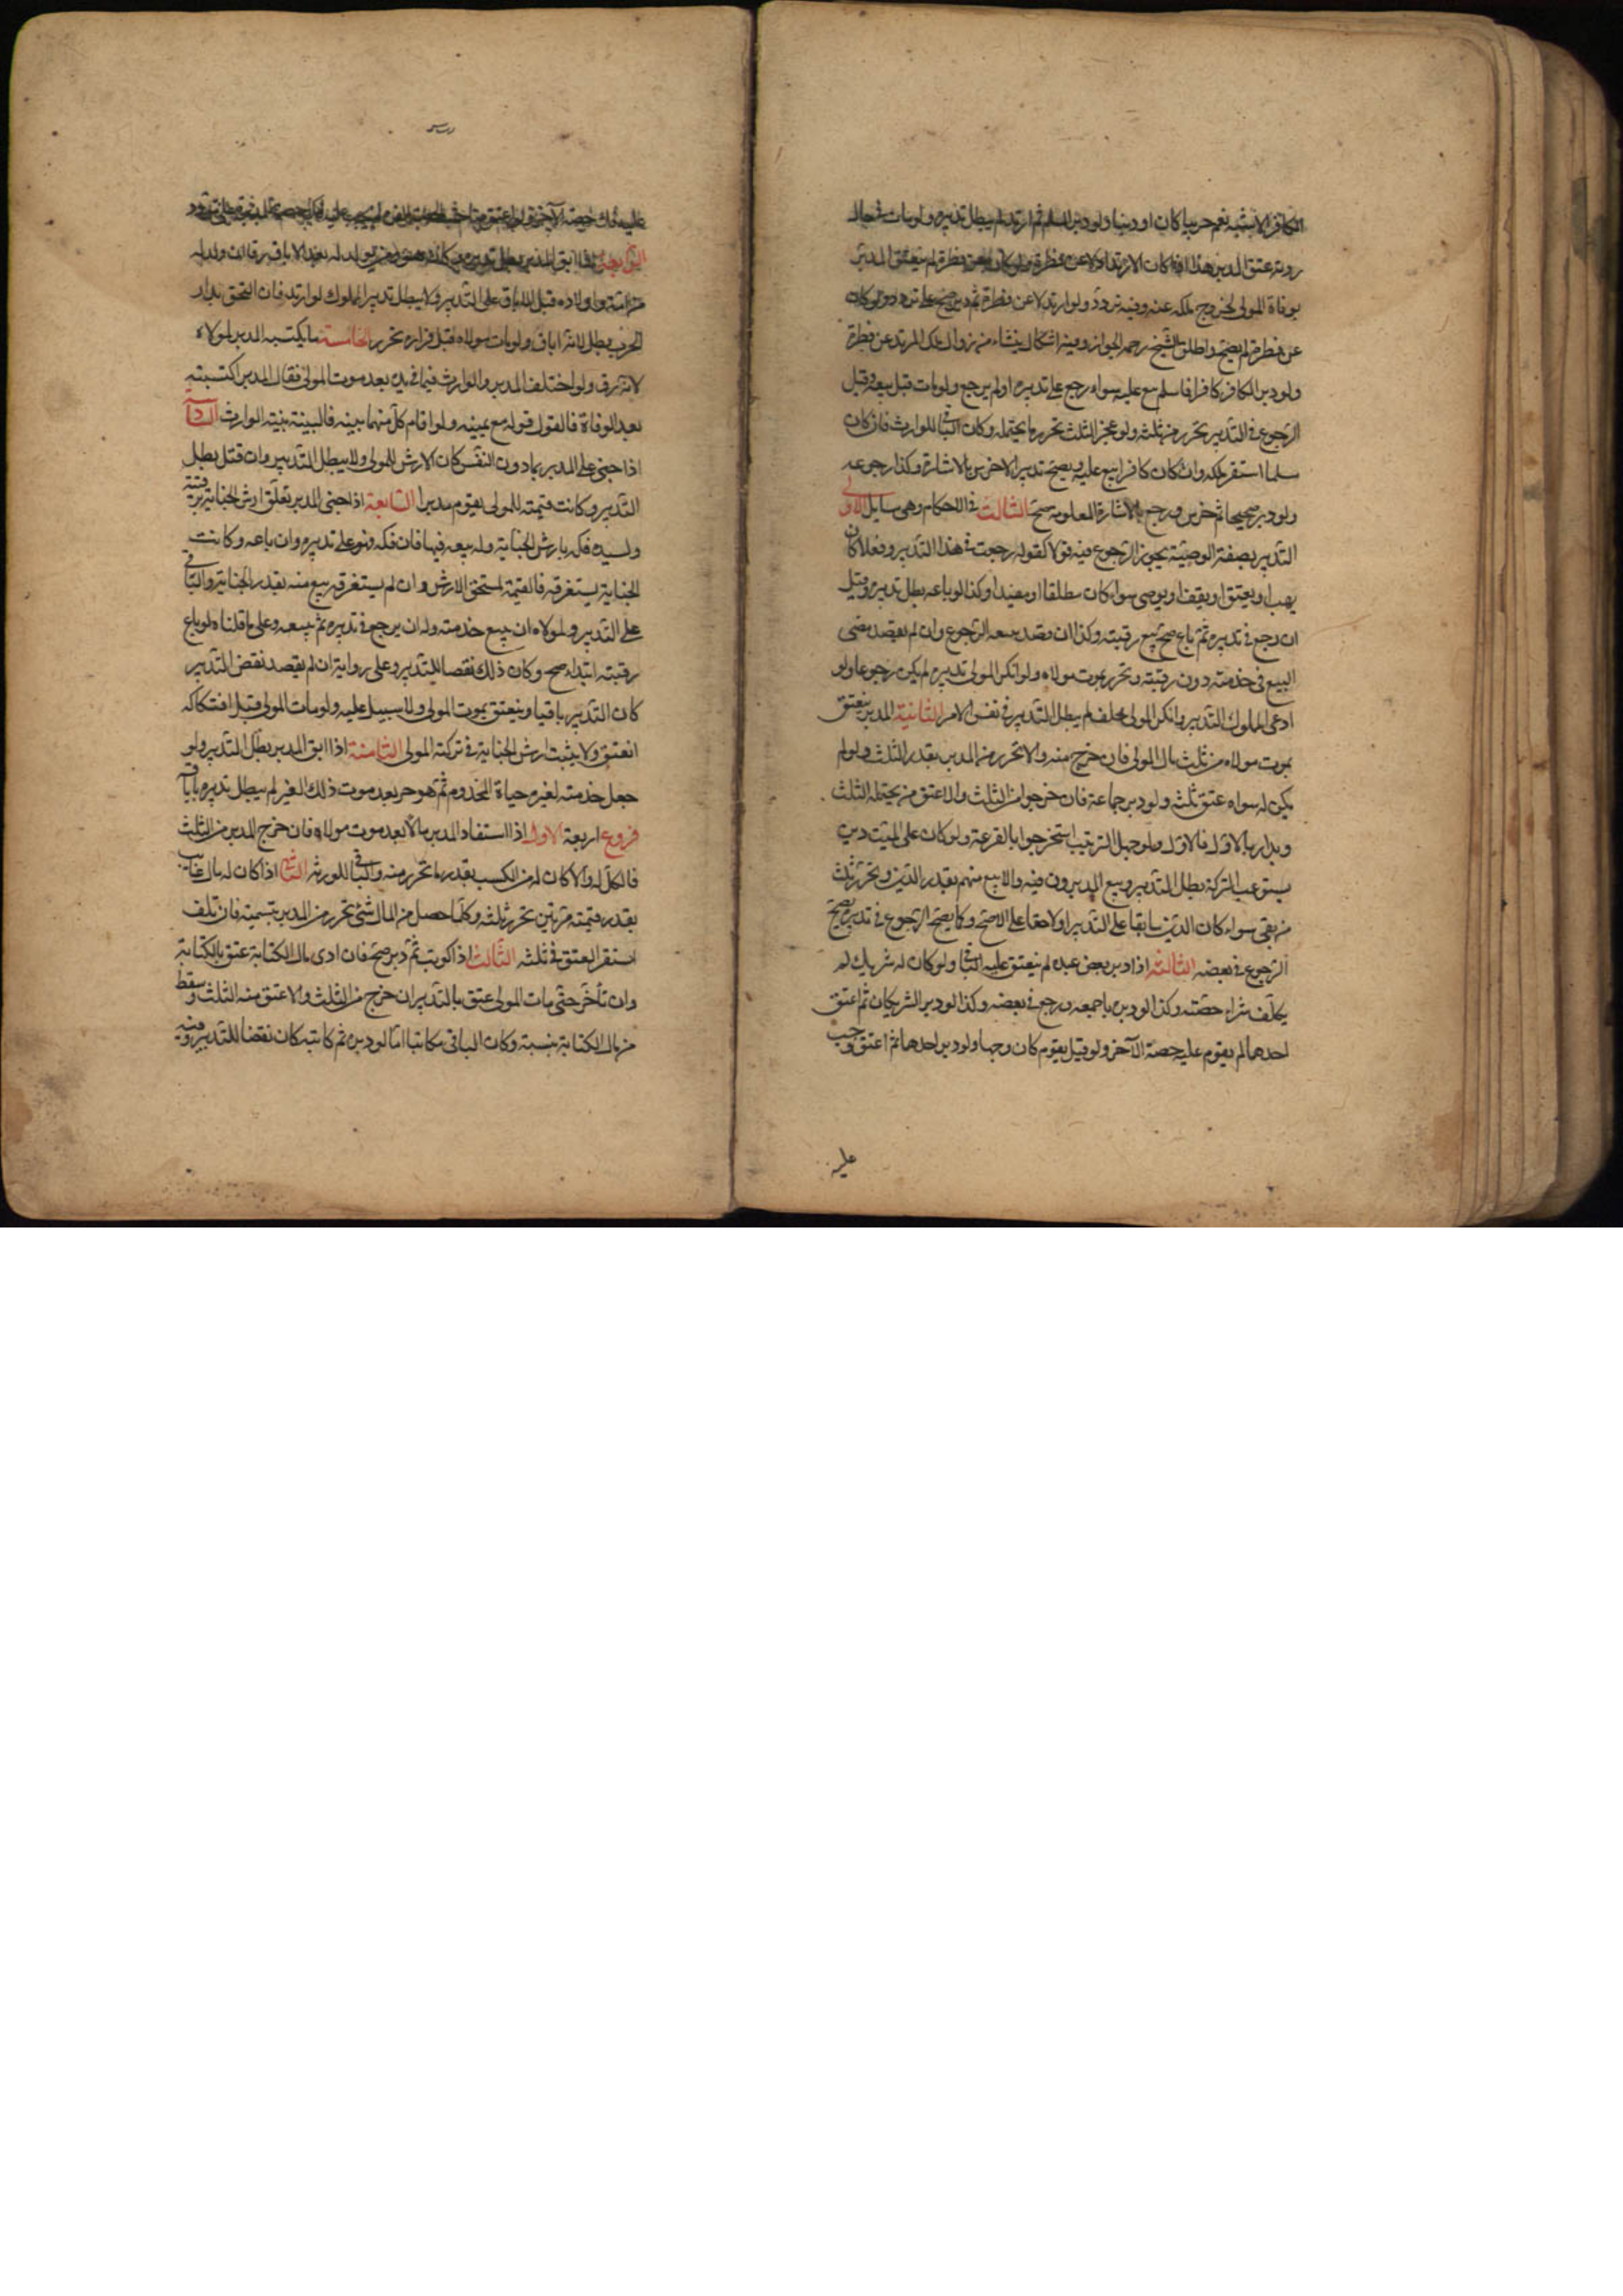 الكافر الاشبه نعم حربيا كان او ذميا ولو دبر المسلم ثم ارتد لم يبطل تدبيره ولو مات في حال
ردته عتق المدبر هذا اذا كان الارتداد لا عن فطرة ولو كان عن فطرة لم ينعتق المدبر
بوفاة المولى لخروج ملكه عنه وفيه تردد ولو ارتد لا عن فطرة ثم دبر صح على تردد ولو كان
عن فطرة لم يصح واطلق الشيخ رحمه الجواز وفيه اشكال ينشاء من زوال ملك المرتد عن فطرة
ولو دبر الكافر كافرا فاسلم بيع عليه سواء رجع على تدبيره او لم يرجع ولو مات قبل بيعه وقبل
الرجوع في التدبير تحرر من ثلثه ولو عجز الثلث تحرر ما يحتمله وكان الباقي للوارث فان كان
مسلما استقر ملكه وان كان كافرا بيع عليه ويصح تدبير الاخرس بالاشارة وكذا رجوعه
ولو دبر صحيحا ثم خرس ورجع بالاشارة المعلومة صح الثالث في الاحكام وهي مسايل الاولى
التدبير بصفة الوصية يجوز الرجوع فيه قولا كقوله رجعت في هذا التدبير وفعلا كان
يهب او يعتق او يقف او يوصى سواء كان مطلقا او مقيدا وكذا لو باعه بطل تدبيره وقيل
ان رجع في تدبيره ثم باع صح بيع رقبته وكذا ان قصد ببيعه الرجوع وان لم يقصد مضى
البيع في خدمته دون رقبته وتحرر بموت مولاه ولو انكر المولى تدبيره لم يكن رجوعا ولو
ادعى المملوك التدبير وانكر المولى فحلف لم يبطل التدبير في نفس الامر الثانية المدبر ينعتق
بموت مولاه من ثلث مال المولى فان خرج منه والا تحرر من المدبر بقدر الثلث ولو لم
يكن له سواه عتق ثلثه ولو دبر جماعة فان خرجوا من الثلث والا عتق من يحتمله الثلث
وبدا بالاول فالاول ولو جهل الترتيب استخرجوا بالقرعة ولو كان على الميت دين
يستوعب التركة بطل التدبير وبيع المدبرون فيه والا بيع منهم بقدر الدين وتحرر ثلث
من بقي سواء كان الدين سابقا على التدبير او لاحقا على الاصح وكما يصح الرجوع في تدبيره يصح
الرجوع في بعضه الثالثة اذا دبر بعض عبده لم ينعتق عليه الباقي ولو كان له شريك لم
يكلف شراء حصته وكذا لو دبره باجمعه ورجع في بعضه وكذا لو دبر الشريكان ثم اعتق
احدهما لم يقوم عليه حصة الآخر ولو قيل يقوم كان وجها ولو دبر احدهما ثم اعتق وجب
عليه
عليه فك حصة الآخر ولو اعتق صاحب الحصة القن لم يجب عليه فك الحصة المدبرة على تردد
الرابعة اذا ابق المدبر بطل تدبيره وكان هو ومن يولد له بعد الاباق رقا ان ولد له
من امة واولاده قبل الاباق على التدبير ولا يبطل تدبير المملوك لو ارتد فان التحق بدار
الحرب بطل لانه اباق ولو مات مولاه قبل فراره تحرر الخامسة ما يكتسبه المدبر لمولاه
لانه رق ولو اختلف المدبر والوارث فيما في يده بعد موت المولى فقال المدبر اكتسبته
بعد الوفاة فالقول قوله مع يمينه ولو اقام كل منهما بينه فالبينة بينة الوارث
اذا جنى على المدبر بما دون النفس كان الارش للمولى ولا يبطل التدبير وان قتل بطل
التدبير وكانت قيمته للمولى يقوم مدبرا السابعة اذا جنى المدبر تعلق ارش الجناية برقبته
ولسيده فكه بارش الجناية وله بيعه فيها فان فكه فهو على تدبيره وان باعه وكانت
الجناية يستغرقه فالقيمة لمستحق الارش وان لم يستغرقه بيع منه بقدر الجناية والباقي
على التدبير ولمولاه ان يبيع خدمته وله ان يرجع في تدبيره ثم يبيعه وعلى ما قلناه لو باع
رقبته ابتداء صح وكان ذلك نقصا للتدبير وعلى رواية ان لم يقصد نقض التدبير
كان التدبير باقيا وينعتق بموت المولى ولا سبيل عليه ولو مات المولى قبل افتكاكه
انعتق ولا يثبت ارش الجناية في تركة المولى الثامنة اذا ابق المدبر بطل التدبير ولو
جعل خدمته لغيره حياة المخدوم ثم هو حر بعد موت ذلك الغير لم يبطل تدبيره باباقه
فروع اربعة الاول اذا استفاد المدبر مالا بعد موت مولاه فان خرج المدبر من الثلث
فالكل له والا كان له من الكسب بقدر ما تحرر منه والباقي للورثة الثاني اذا كان له مال غايب
بقدر قيمته مرتين تحرر ثلثه وكلما حصل من المال شئ تحرر من المدبر بنسبته فان تلف
استقر العتق في ثلثه الثالث اذا كوتب ثم دبر صح فان ادى مال الكتابة عتق بالكتابة
وان تأخر حتى مات المولى عتق بالتدبير ان خرج من الثلث والا عتق منه الثلث وسقط
من مال الكتابة بنسبته وكان الباقي مكاتبا اما لو دبره ثم كاتبه كان نقضا للتدبير وفيه